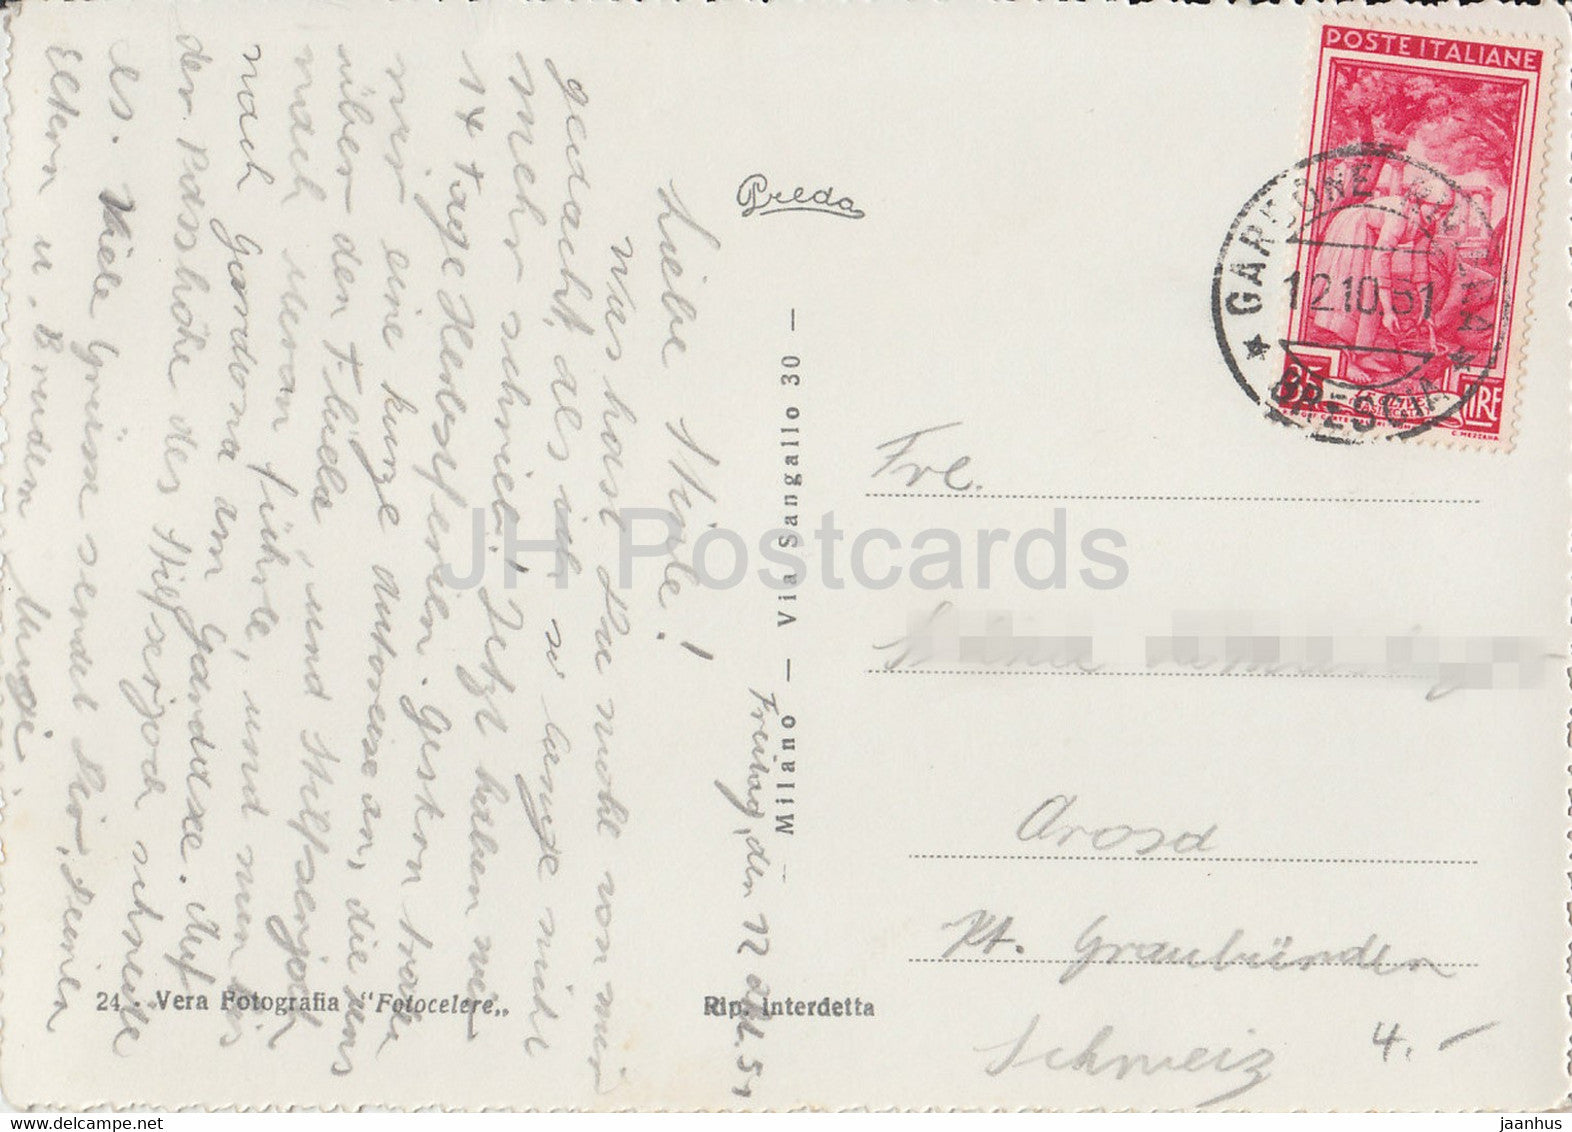 Freitag, den 12. Okt. 51
Liebe
Was hast Du wohl von mir
gedacht, als ich so lange nicht
mehr schrieb! Jetzt haben wir
14 Tage Herbstferien. Gestern trat
mir eine kurze Autoreise an, die uns
über den Flüela, und Stilfserjoch
nach Meran führte, und nun bis
nach Gardona am Gardasee. Auf
der Passhöhe des Stilfserjoch schneite
es. Viele Grüsse sendet Dir, Deinen
Eltern u. Bruder
Preda
Milano — Via Sangallo 30 —
24 - Vera Fotografia "Fotocelere„
Rip. interdetta
POSTE ITALIANE
LIRE
C. MEZZANA
GARDONE RIVIERA
12.10.51
BRESCIA
Frl.
Arosa
Kt. Graubünden
Schweiz
4.-
JH Postcards
delcampe.net
jaanhus